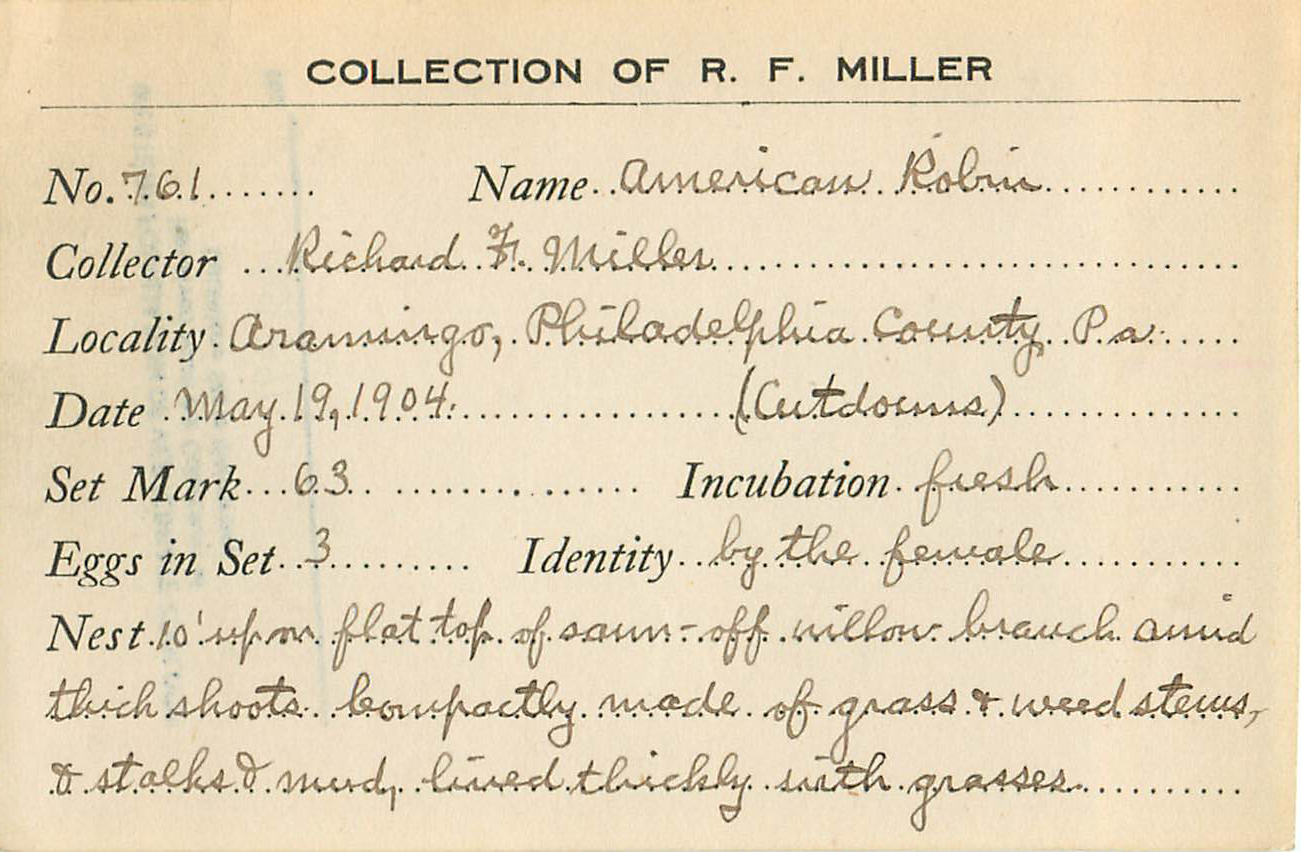 COLLECTION OF R. F. MILLER
No. 761 Name American Robin
Collector Richard F. Miller
Locality Aramingo, Philadelphia County Pa.
Date May 19, 1904. (Cutdowns)
Set Mark 63 Incubation fresh
Eggs in Set 3 Identity by the female
Nest 10' up on flat top of sawn-off willow branch amid
thick shoots. Compactly made of grass & weed stems,
& stalks & mud, lined thickly with grasses.